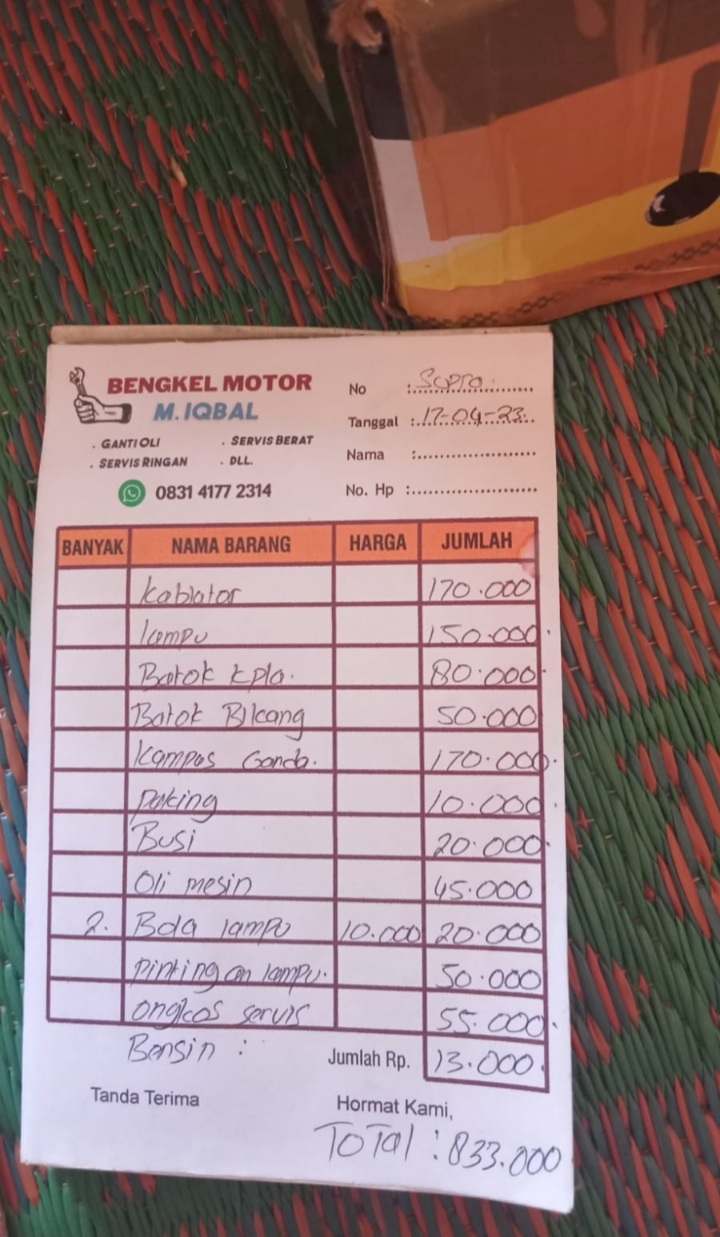 BENGKEL MOTOR
M. IQBAL
. GANTI OLI . SERVIS BERAT
. SERVIS RINGAN . DLL.
0831 4177 2314
No : Supra
Tanggal : 17-04-23
Nama :
No. Hp :
BANYAK NAMA BARANG HARGA JUMLAH
kablator 170.000
lampu 150.000
Batok kpla. 80.000
Batok Blkang 50.000
kampas Ganda. 170.000
paking 10.000
Busi 20.000
Oli mesin 45.000
2. Bola lampu 10.000 20.000
pintingan lampu. 50.000
ongkos servis 55.000
Bensin : Jumlah Rp. 13.000
Tanda Terima Hormat Kami,
ToTal : 833.000